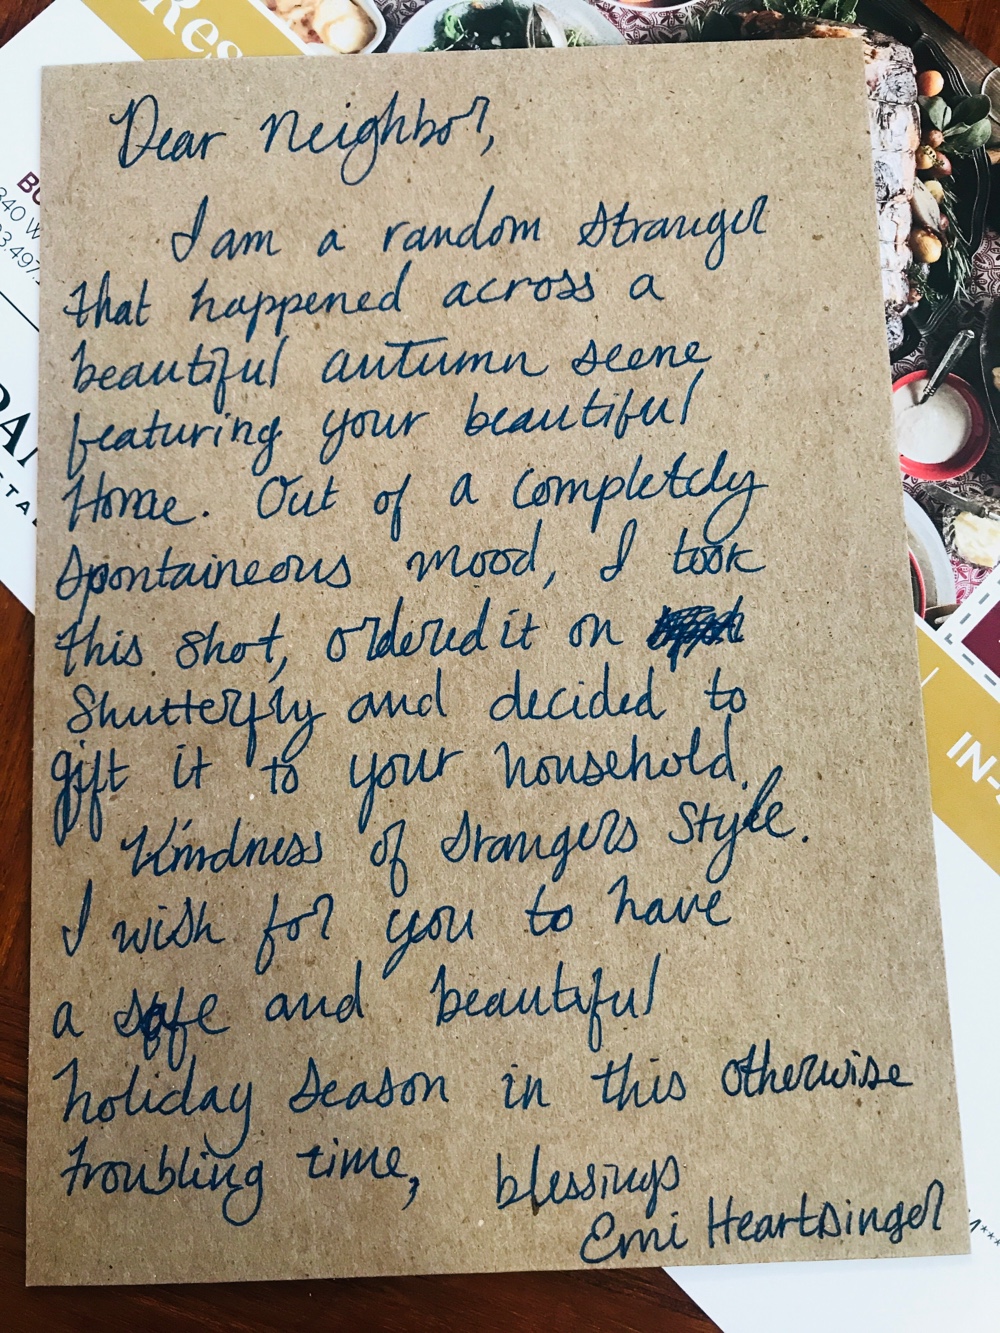 Res
BO
340 W
03.497.
DAI
ETA
Dear Neighbor,
I am a random stranger
that happened across a
beautiful autumn scene
featuring your beautiful
Home. Out of a completely
spontaineous mood, I took
this shot, ordered it on
Shutterfly and decided to
gift it to your household.
Kindness of strangers style.
I wish for you to have
a safe and beautiful
holiday season in this otherwise
troubling time, blessings
Emi Heartsinger
IN-